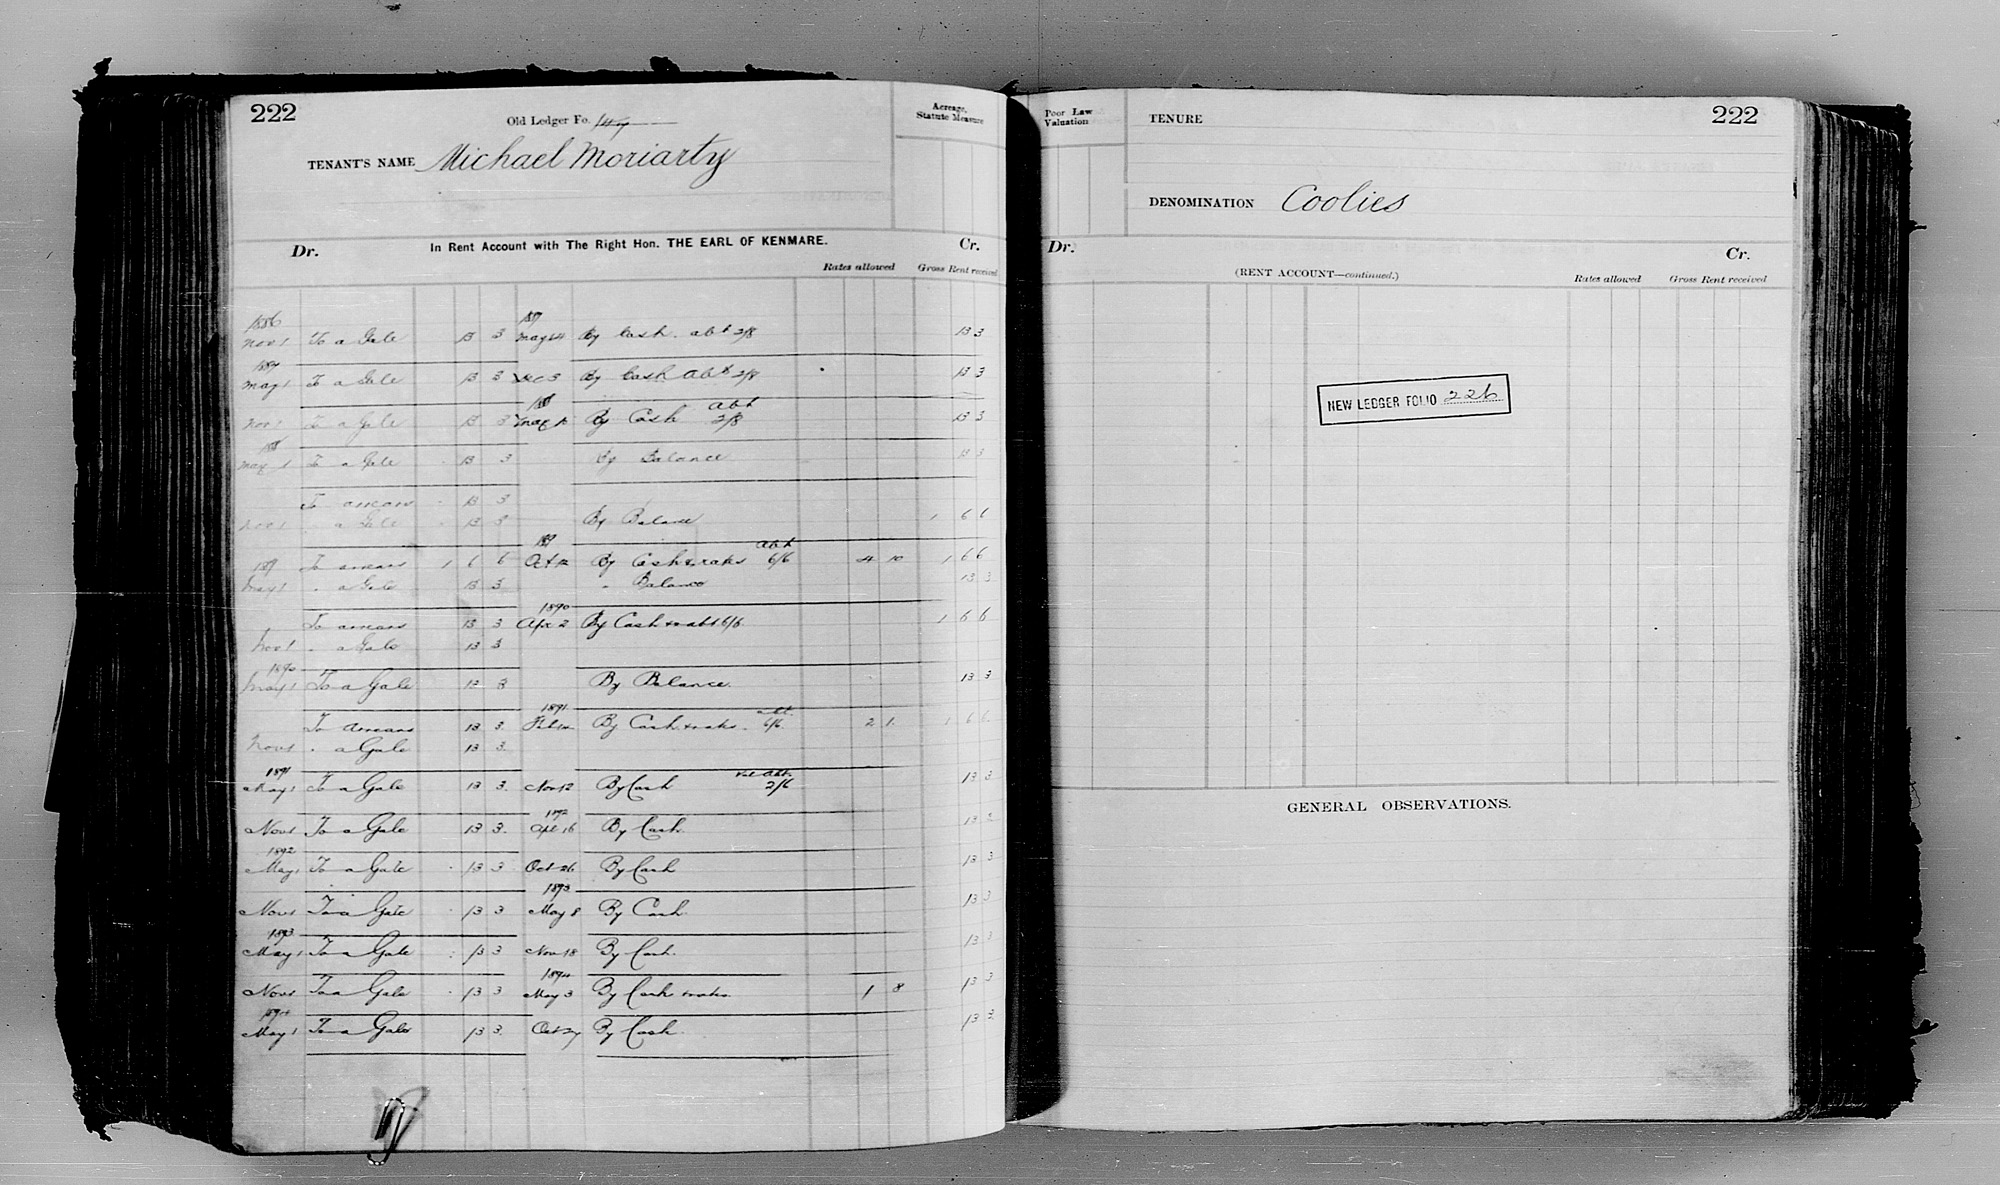 222
Old Ledger Fo.
Acreage, Statute Measure
TENANT'S NAME Michael Moriarty
Dr. In Rent Account with The Right Hon. THE EARL OF KENMARE. Cr.
Rates allowed Gross Rent received
1886 1887
Nov 1 To a Gale 13 3 May By Cash abt 2/8 13 3
1887
May 1 To a Gale 13 3 Dec 3 By Cash Abt 2/8 13 3
1888 Abt
Nov 1 To a Gale 13 3 By Cash 2/8 13 3
1888
May 1 To a Gale 13 3 By Balance 13 3
To arrears 13 3
Nov 1 " a Gale 13 3 By Balance 1 6 6
1889 Abt
1889 To arrears 1 6 6 Oct 12 By Cash & rates 6/6 4 10 1 6 6
May 1 " a Gale 13 3 " Balance 13 3
1890
To arrears 13 3 Apr 2 By Cash & abt 6/6 1 6 6
Nov 1 " a Gale 13 3
1890
May 1 To a Gale 13 3 By Balance. 13 3
1891 abt
To arrears 13 3 Feb By Cash & rates 6/6 2 1 1 6 6
Nov 1 " a Gale 13 3
1891 Abt.
May 1 To a Gale 13 3 Nov 12 By Cash 2/6 13 3
1892
Nov 1 To a Gale 13 3 Apl 16 By Cash 13 3
1892
May 1 To a Gale 13 3 Oct 26 By Cash 13 3
1893
Nov 1 To a Gale 13 3 May 8 By Cash 13 3
1893
May 1 To a Gale 13 3 Nov 18 By Cash. 13 3
1894
Nov 1 To a Gale 13 3 May 3 By Cash & rates 1 8 13 3
1894
May 1 To a Gale 13 3 Oct 27 By Cash 13 3
Poor Law Valuation
TENURE
222
DENOMINATION Coolies
Dr. Cr.
(RENT ACCOUNT—continued.)
Rates allowed Gross Rent received
NEW LEDGER FOLIO 226
GENERAL OBSERVATIONS.